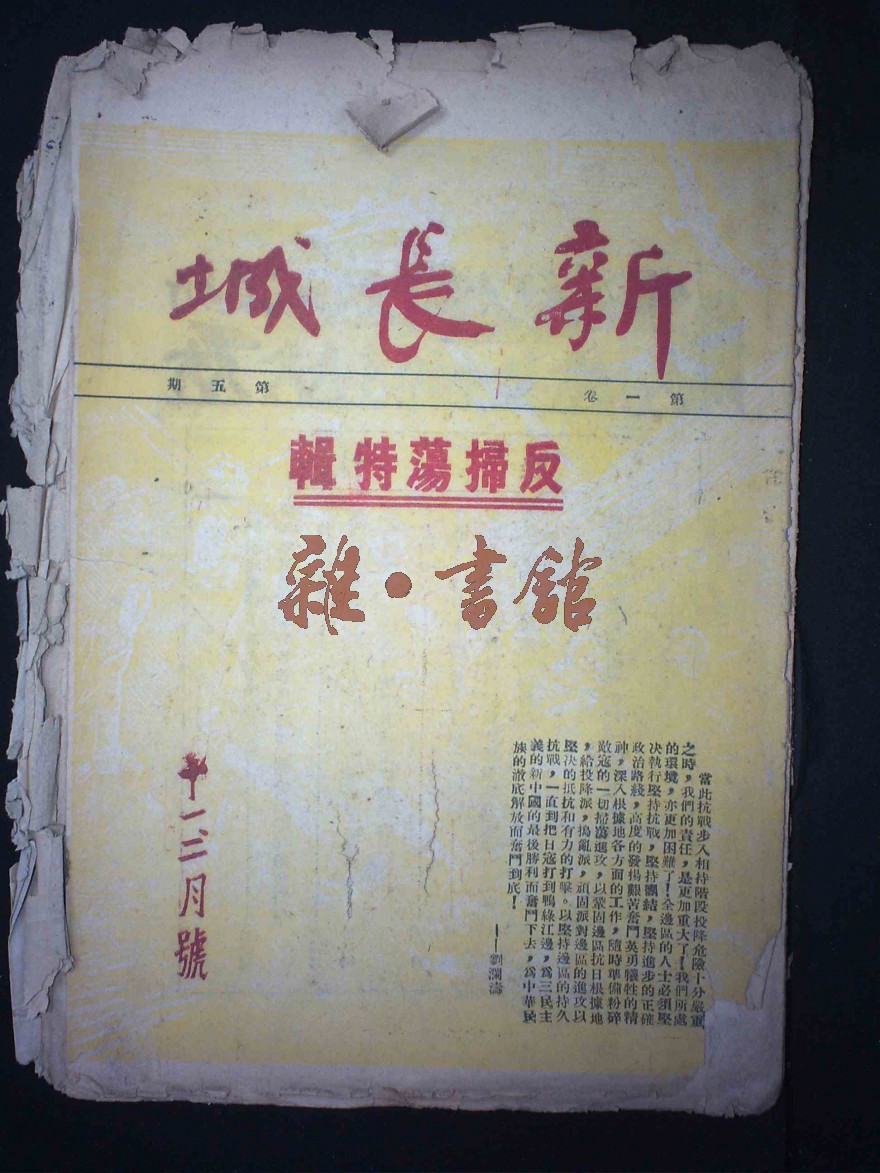 新長城
第一卷 第五期
反掃蕩特輯
雜·書館
當此抗戰步入相持階段投降危險十分嚴重
之時，我們的責任，是更加重大了！我們所處
的環境，亦更加困難了！全邊區的人士必須堅
決執行堅持抗戰，堅持團結，堅持進步的正確
政治路綫，高度的發揚艱苦奮鬥英勇犧牲的精
神，深入根據地各方面的工作，隨時準備粉碎
敵寇的一切掃蕩進攻，以鞏固邊區抗日根據地
，給投降派，搗亂派，頑固派對邊區的進攻以
堅决的抵抗和有力的打擊。以堅持邊區的持久
抗戰，一直到把日寇打到鴨綠江邊，爲三民主
義的新中國的最後勝利而奮鬥下去，爲中華民
族的澈底解放而奮鬥到底！
——劉瀾濤
十一、二月號